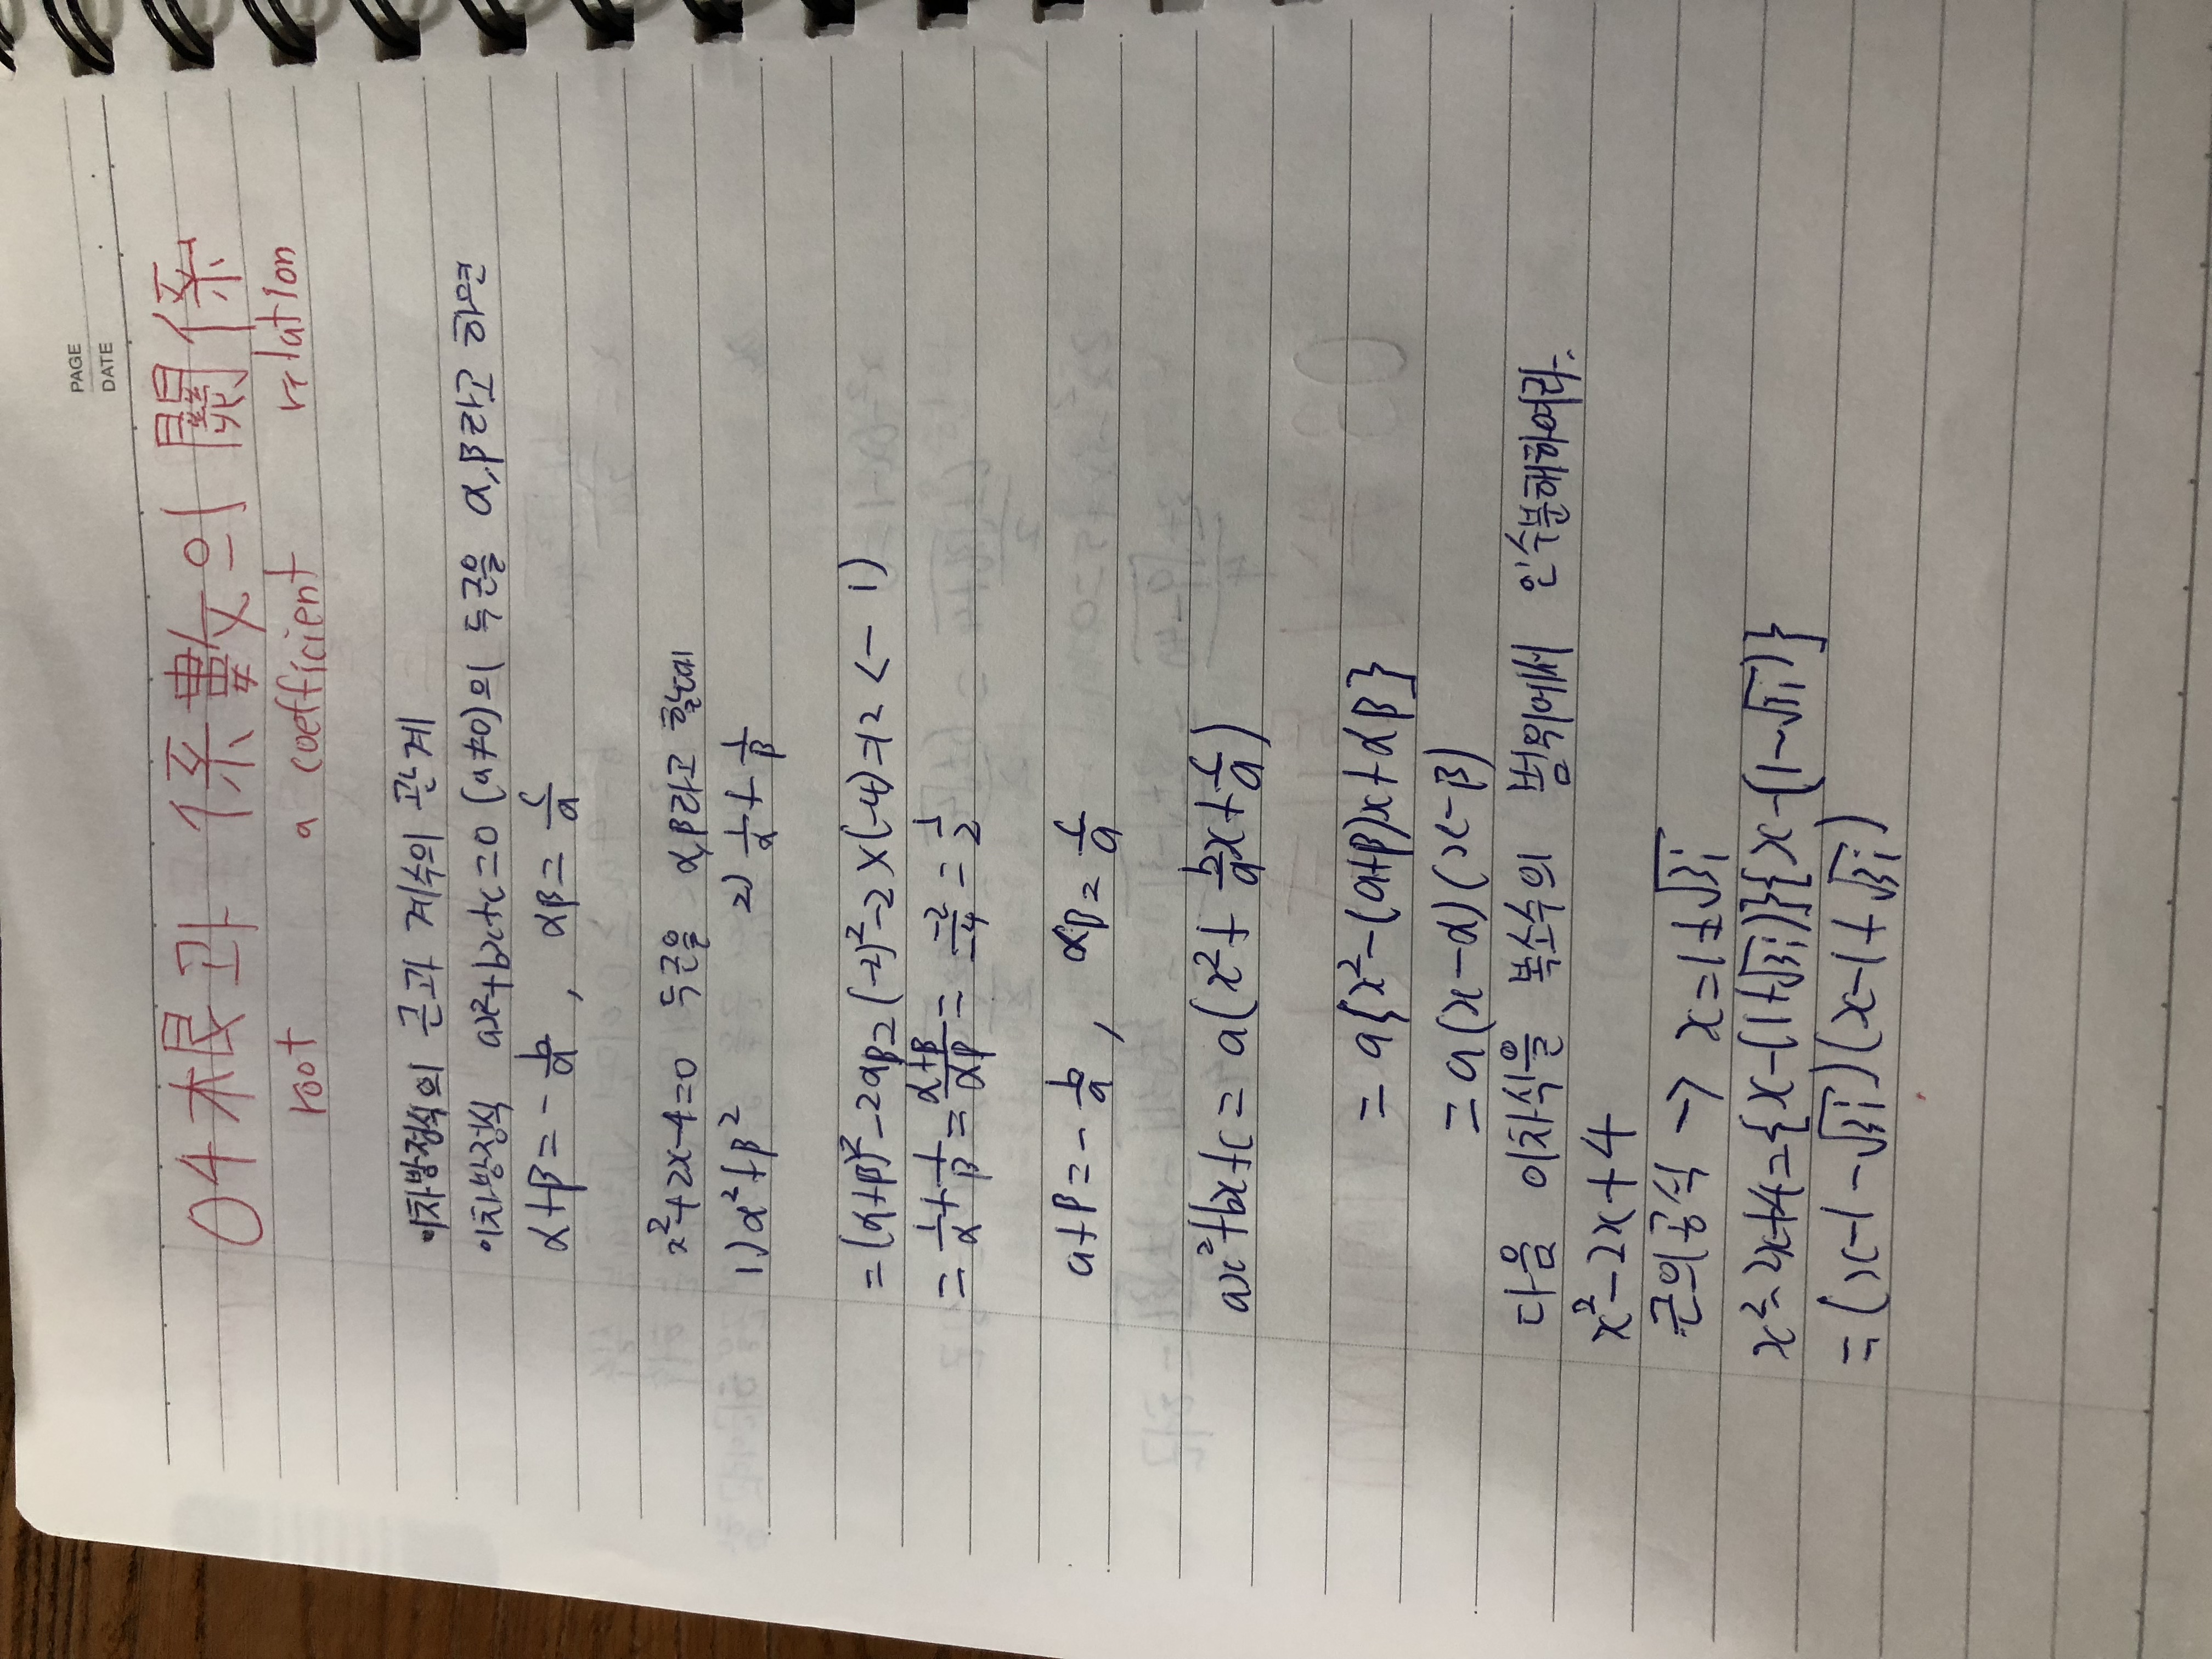 PAGE
DATE
04 根과 系數의 關係
root a coefficient relation
이차방정식의 근과 계수의 관계
이차방정식 ax²+bx+c=0 (a≠0)의 두근을 α,β라고 하면
α+β=-b/a , αβ=c/a
x²+2x-4=0 두근을 α,β라고 할때
1) α²+β² 2) 1/α+1/β
=(α+β)²-2αβ=(-2)²-2×(-4)=12 <- 1)
=1/α+1/β=α+β/αβ=-2/-4=1/2
α+β=-b/a , αβ=c/a
ax²+bx+c=a(x²+b/a x+c/a)
=a{x²-(α+β)x+αβ}
=a(x-α)(x-β)
다음 이차식을 복소수의 범위에서 인수분해하여라.
x²-2x+4
근의공식 -> x=1±√3i
x²-2x+4={x-(1+√3i)}{x-(1-√3i)}
=(x-1-√3i)(x-1+√3i)